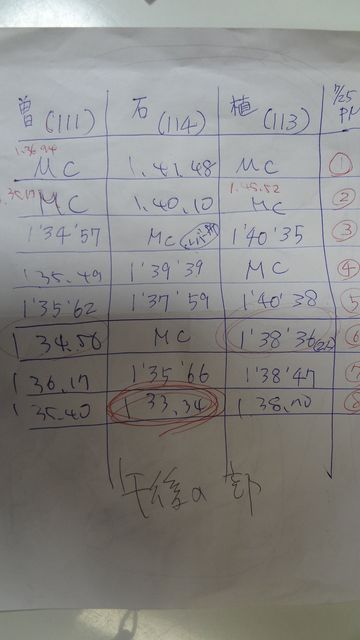 曽(111) 石(114) 植(113) 7/25 PM
1.36.94
MC 1.41.48 MC ①
1.45.52
MC 1.40.10 MC ②
1'34'57 MC 1'40'35 ③
1'35.49 1'39'39 MC ④
1'35'62 1'37'59 1'40'38 ⑤
1 34.56 MC 1'38'36 ⑥
1 36.17 1'35'66 1'38'47 ⑦
1'35.40 1 33.34 1.38.70 ⑧
午後の部